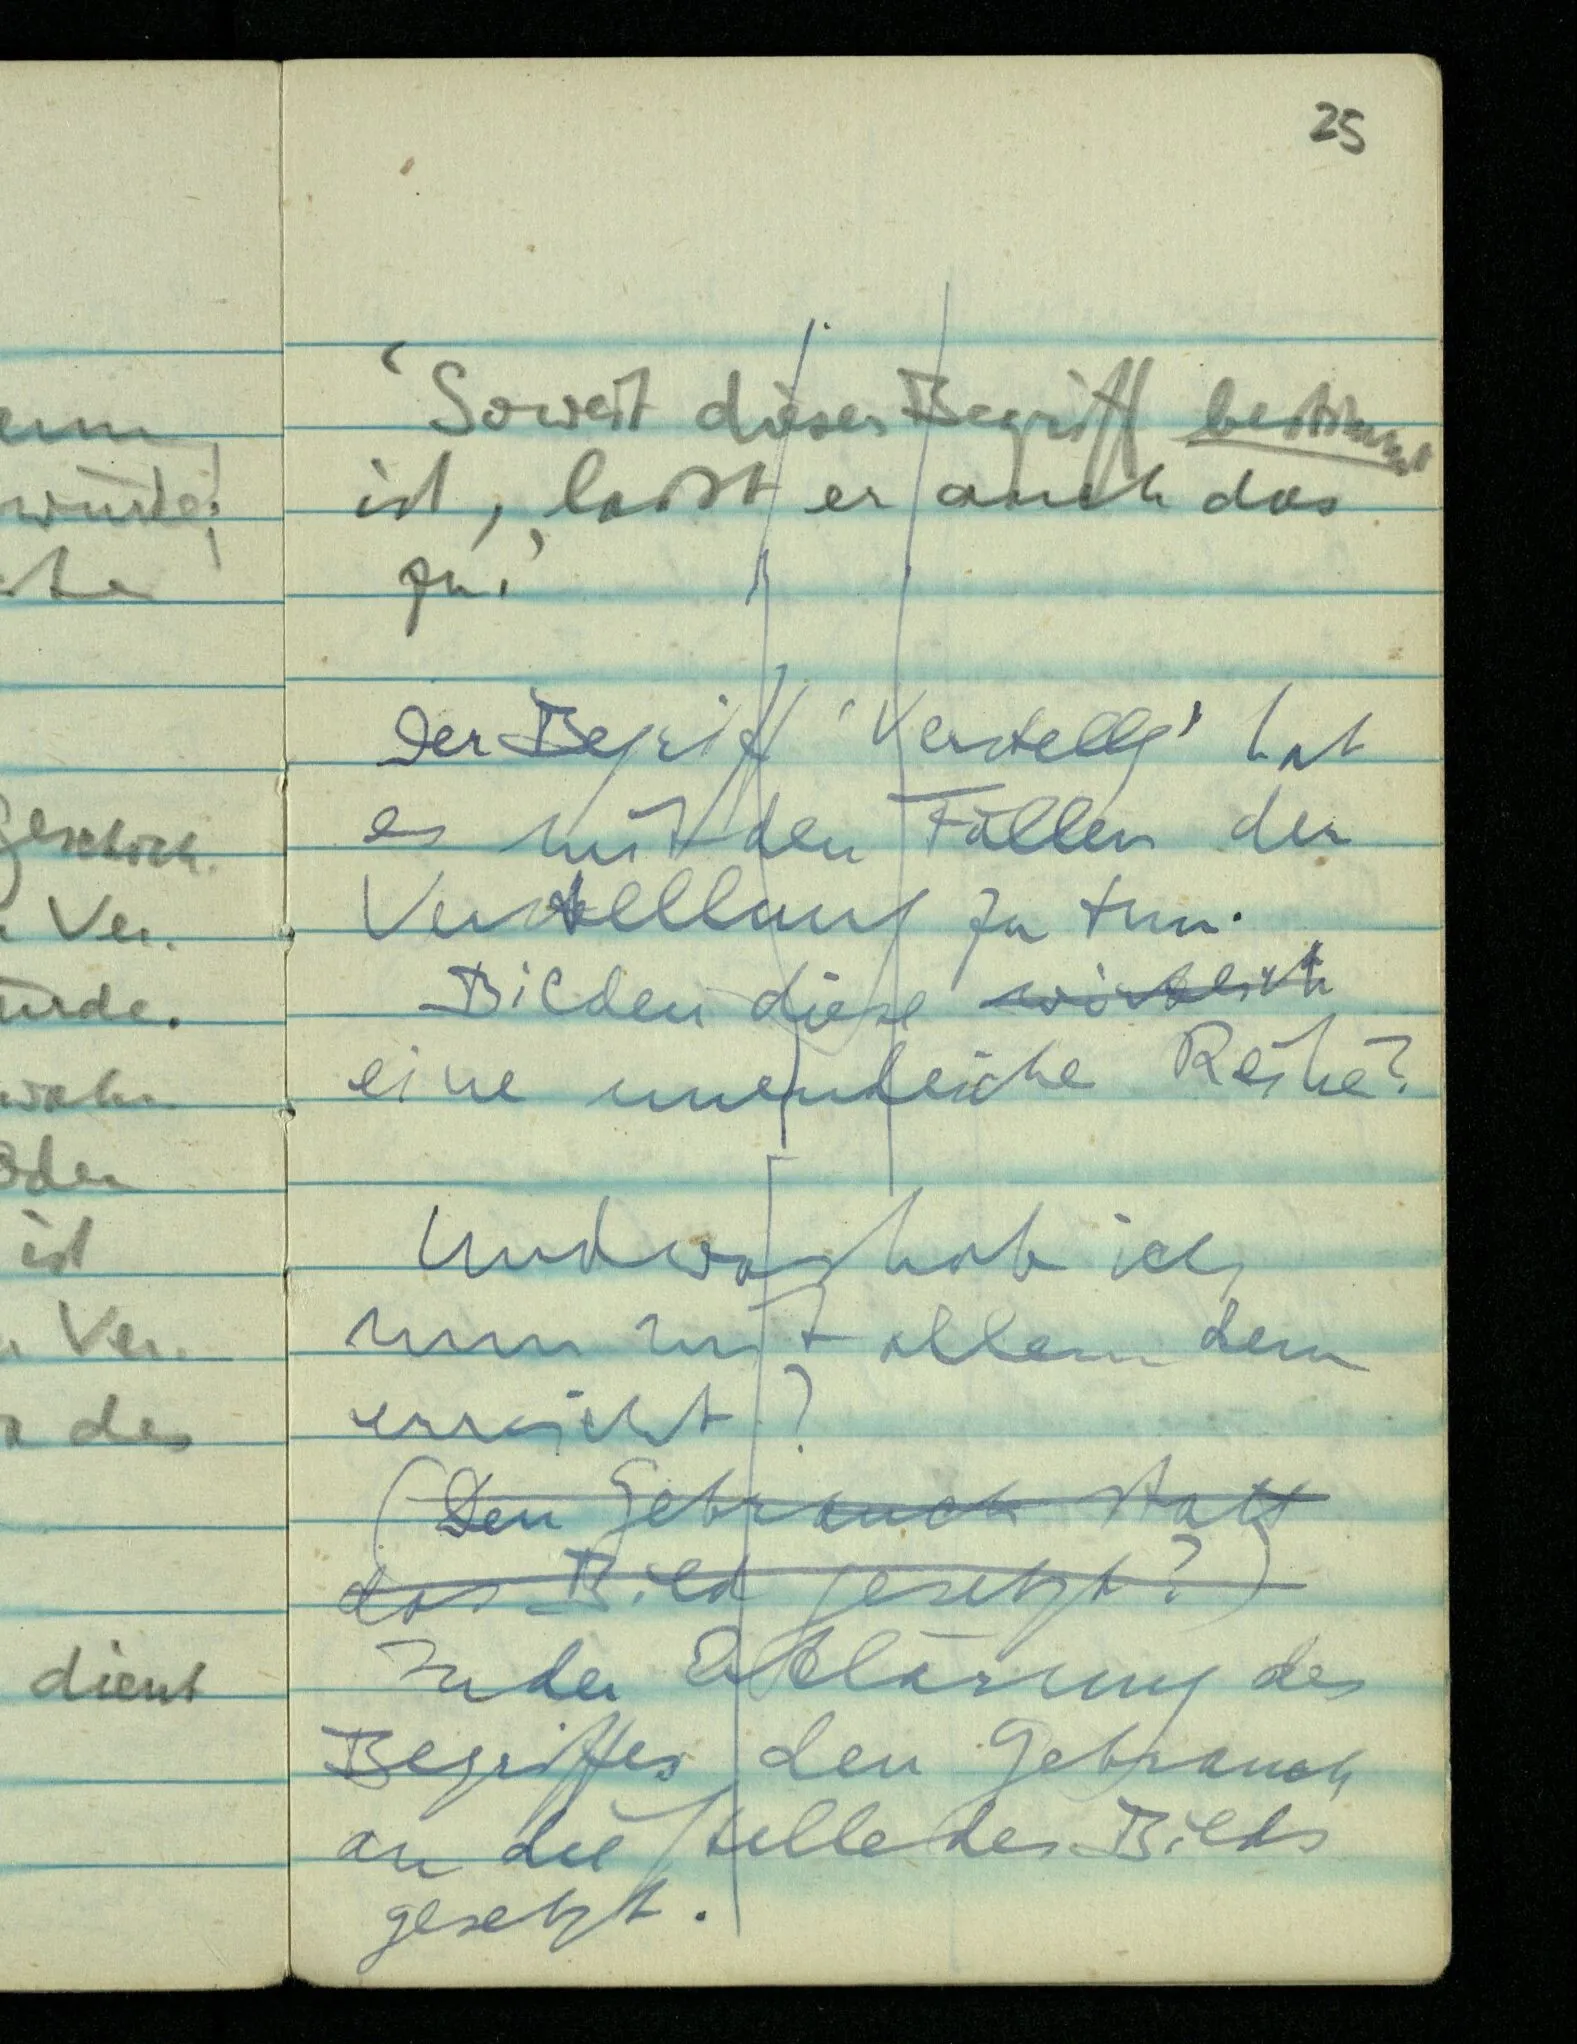 25
enn
würde;
Geschick.
Ver.
würde.
wahr
Oder
ist
Ver.
des
dient
‘Soweit dieser Begriff bestimmt
ist, lasst er auch das
zu.’
Der Begriff ‘Verstellg’ hat
es mit den Fällen der
Verstellung zu tun.
Bilden diese wirklich
eine unendliche Reihe?
Und was hab ich
nun mit allem dem
erreicht?
(Den Gebrauch statt
das Bild gesetzt?)
In der Erklärung des
Begriffes den Gebrauch
an die Stelle des Bilds
gesetzt.